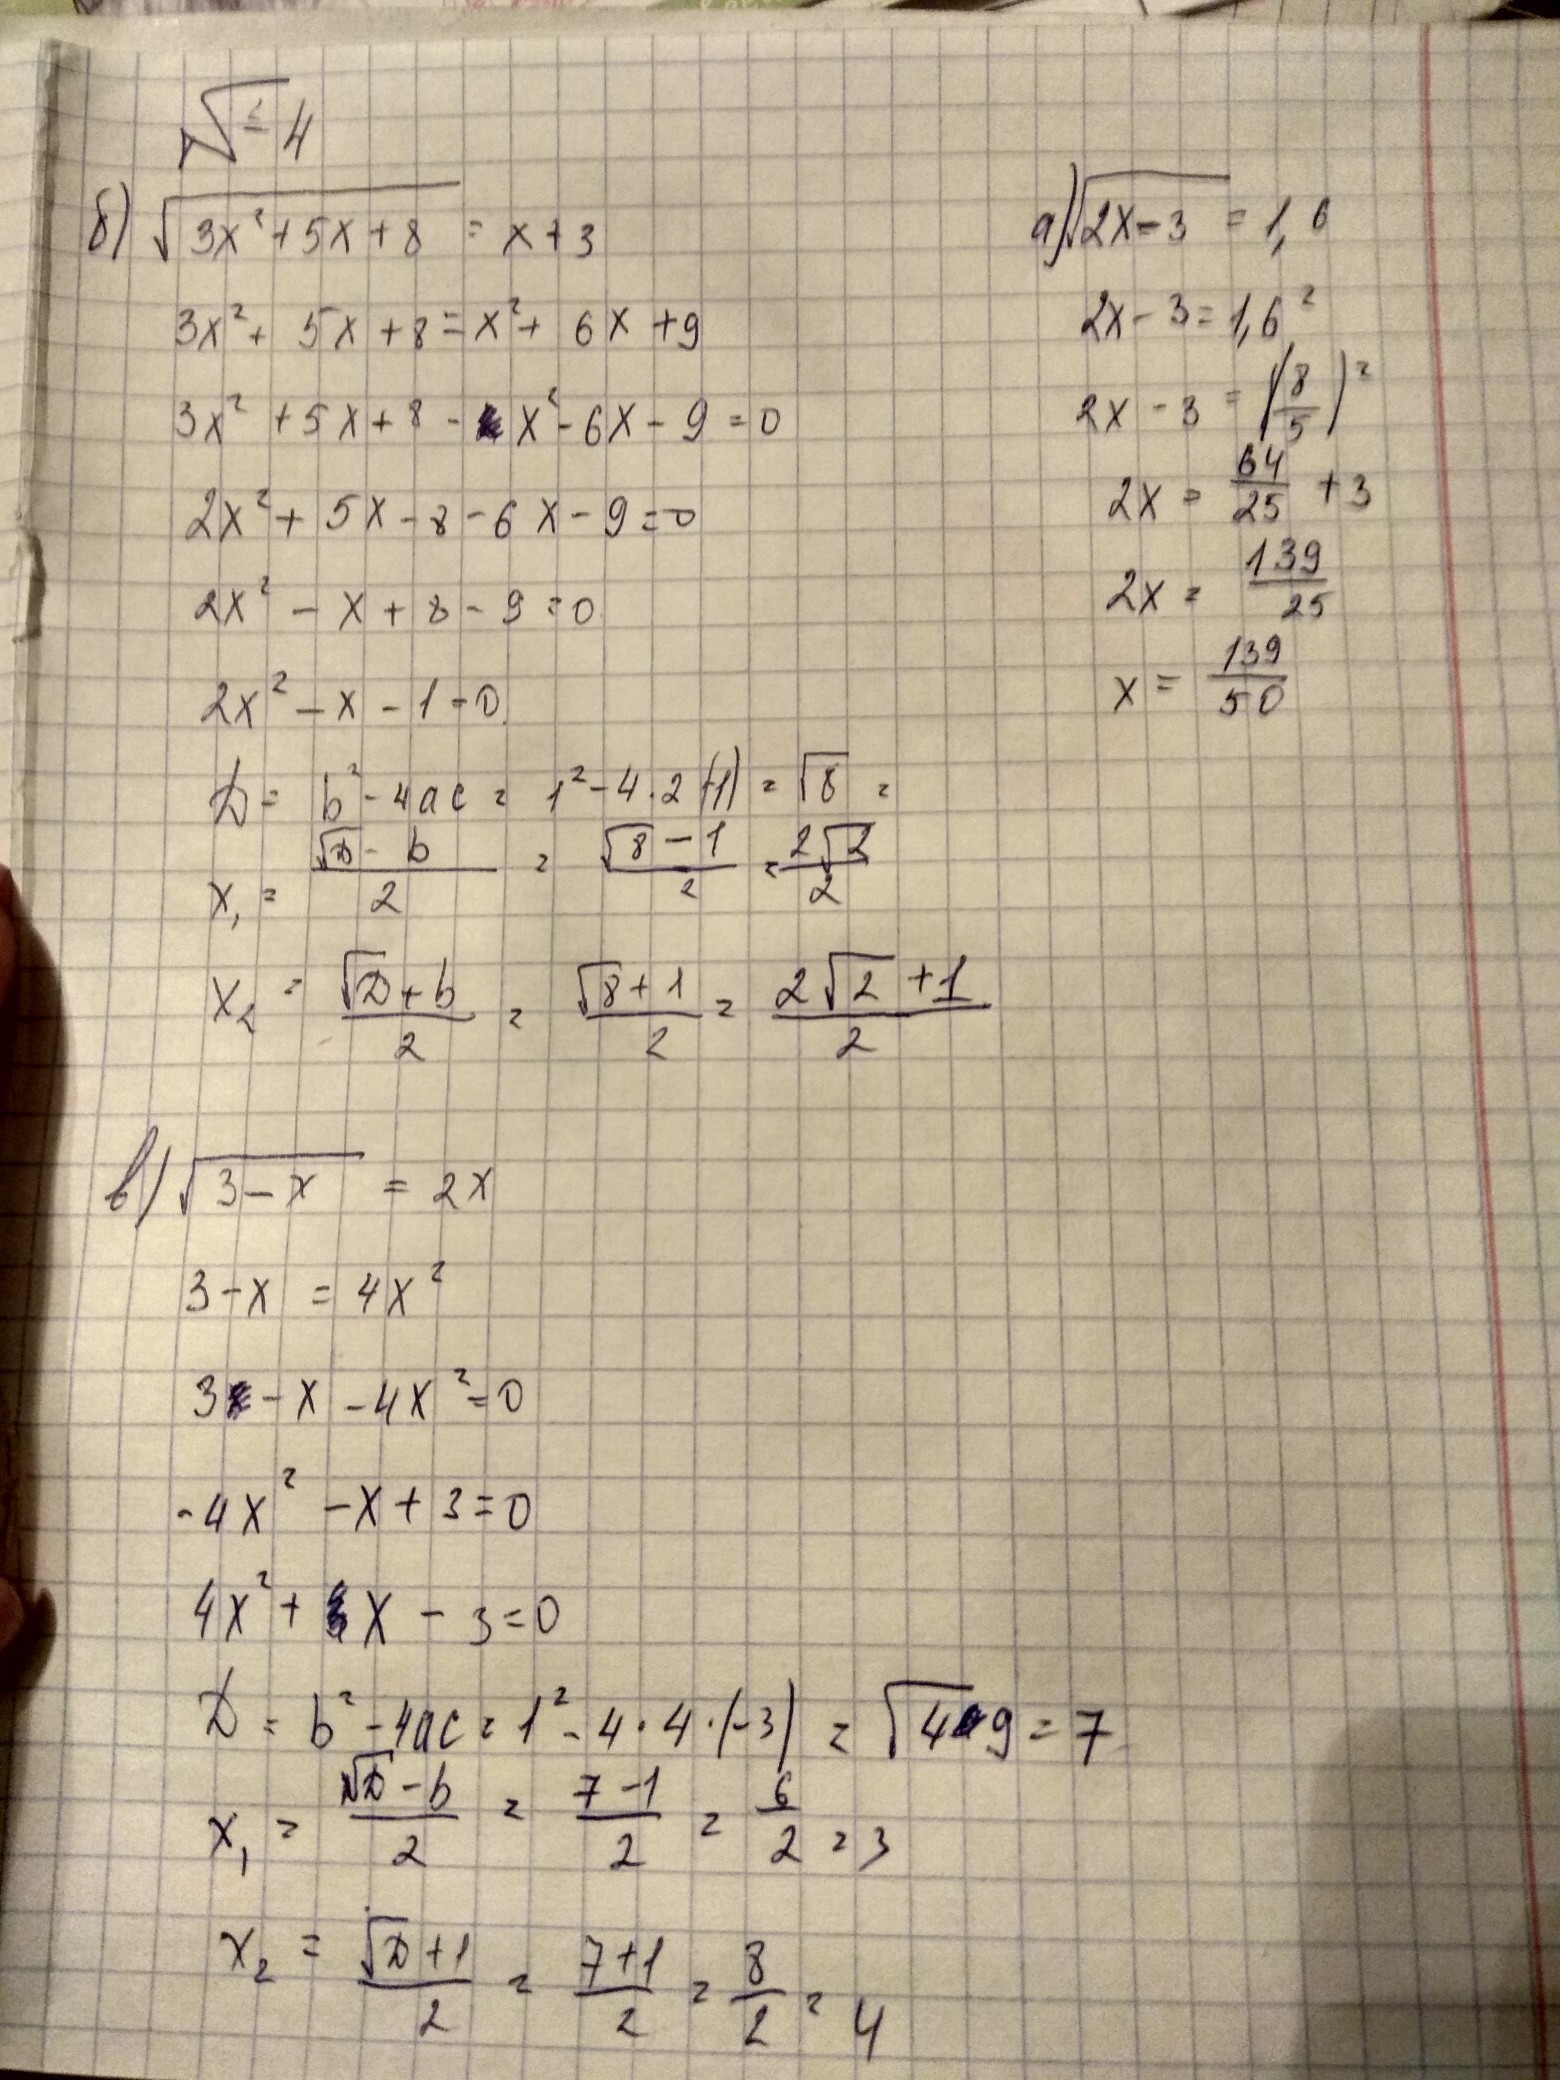 √ ≤ 4
б) √(3x² + 5x + 8) = x + 3
3x² + 5x + 8 = x² + 6x + 9
3x² + 5x + 8 - x² - 6x - 9 = 0
2x² + 5x - 8 - 6x - 9 = 0
2x² - x + 8 - 9 = 0
2x² - x - 1 = 0
D = b² - 4ac = 1² - 4 · 2 (-1) = √8 =
x₁ = (√D - b)/2 = (√8 - 1)/2 = 2√2/2
x₂ = (√D + b)/2 = (√8 + 1)/2 = (2√2 + 1)/2
а) √(2x - 3) = 1,6
2x - 3 = 1,6²
2x - 3 = (8/5)²
2x = 64/25 + 3
2x = 139/25
x = 139/50
в) √(3 - x) = 2x
3 - x = 4x²
3 - x - 4x² = 0
-4x² - x + 3 = 0
4x² + x - 3 = 0
D = b² - 4ac = 1² - 4 · 4 · (-3) = √49 = 7
x₁ = (√D - b)/2 = (7 - 1)/2 = 6/2 = 3
x₂ = (√D + 1)/2 = (7 + 1)/2 = 8/2 = 4